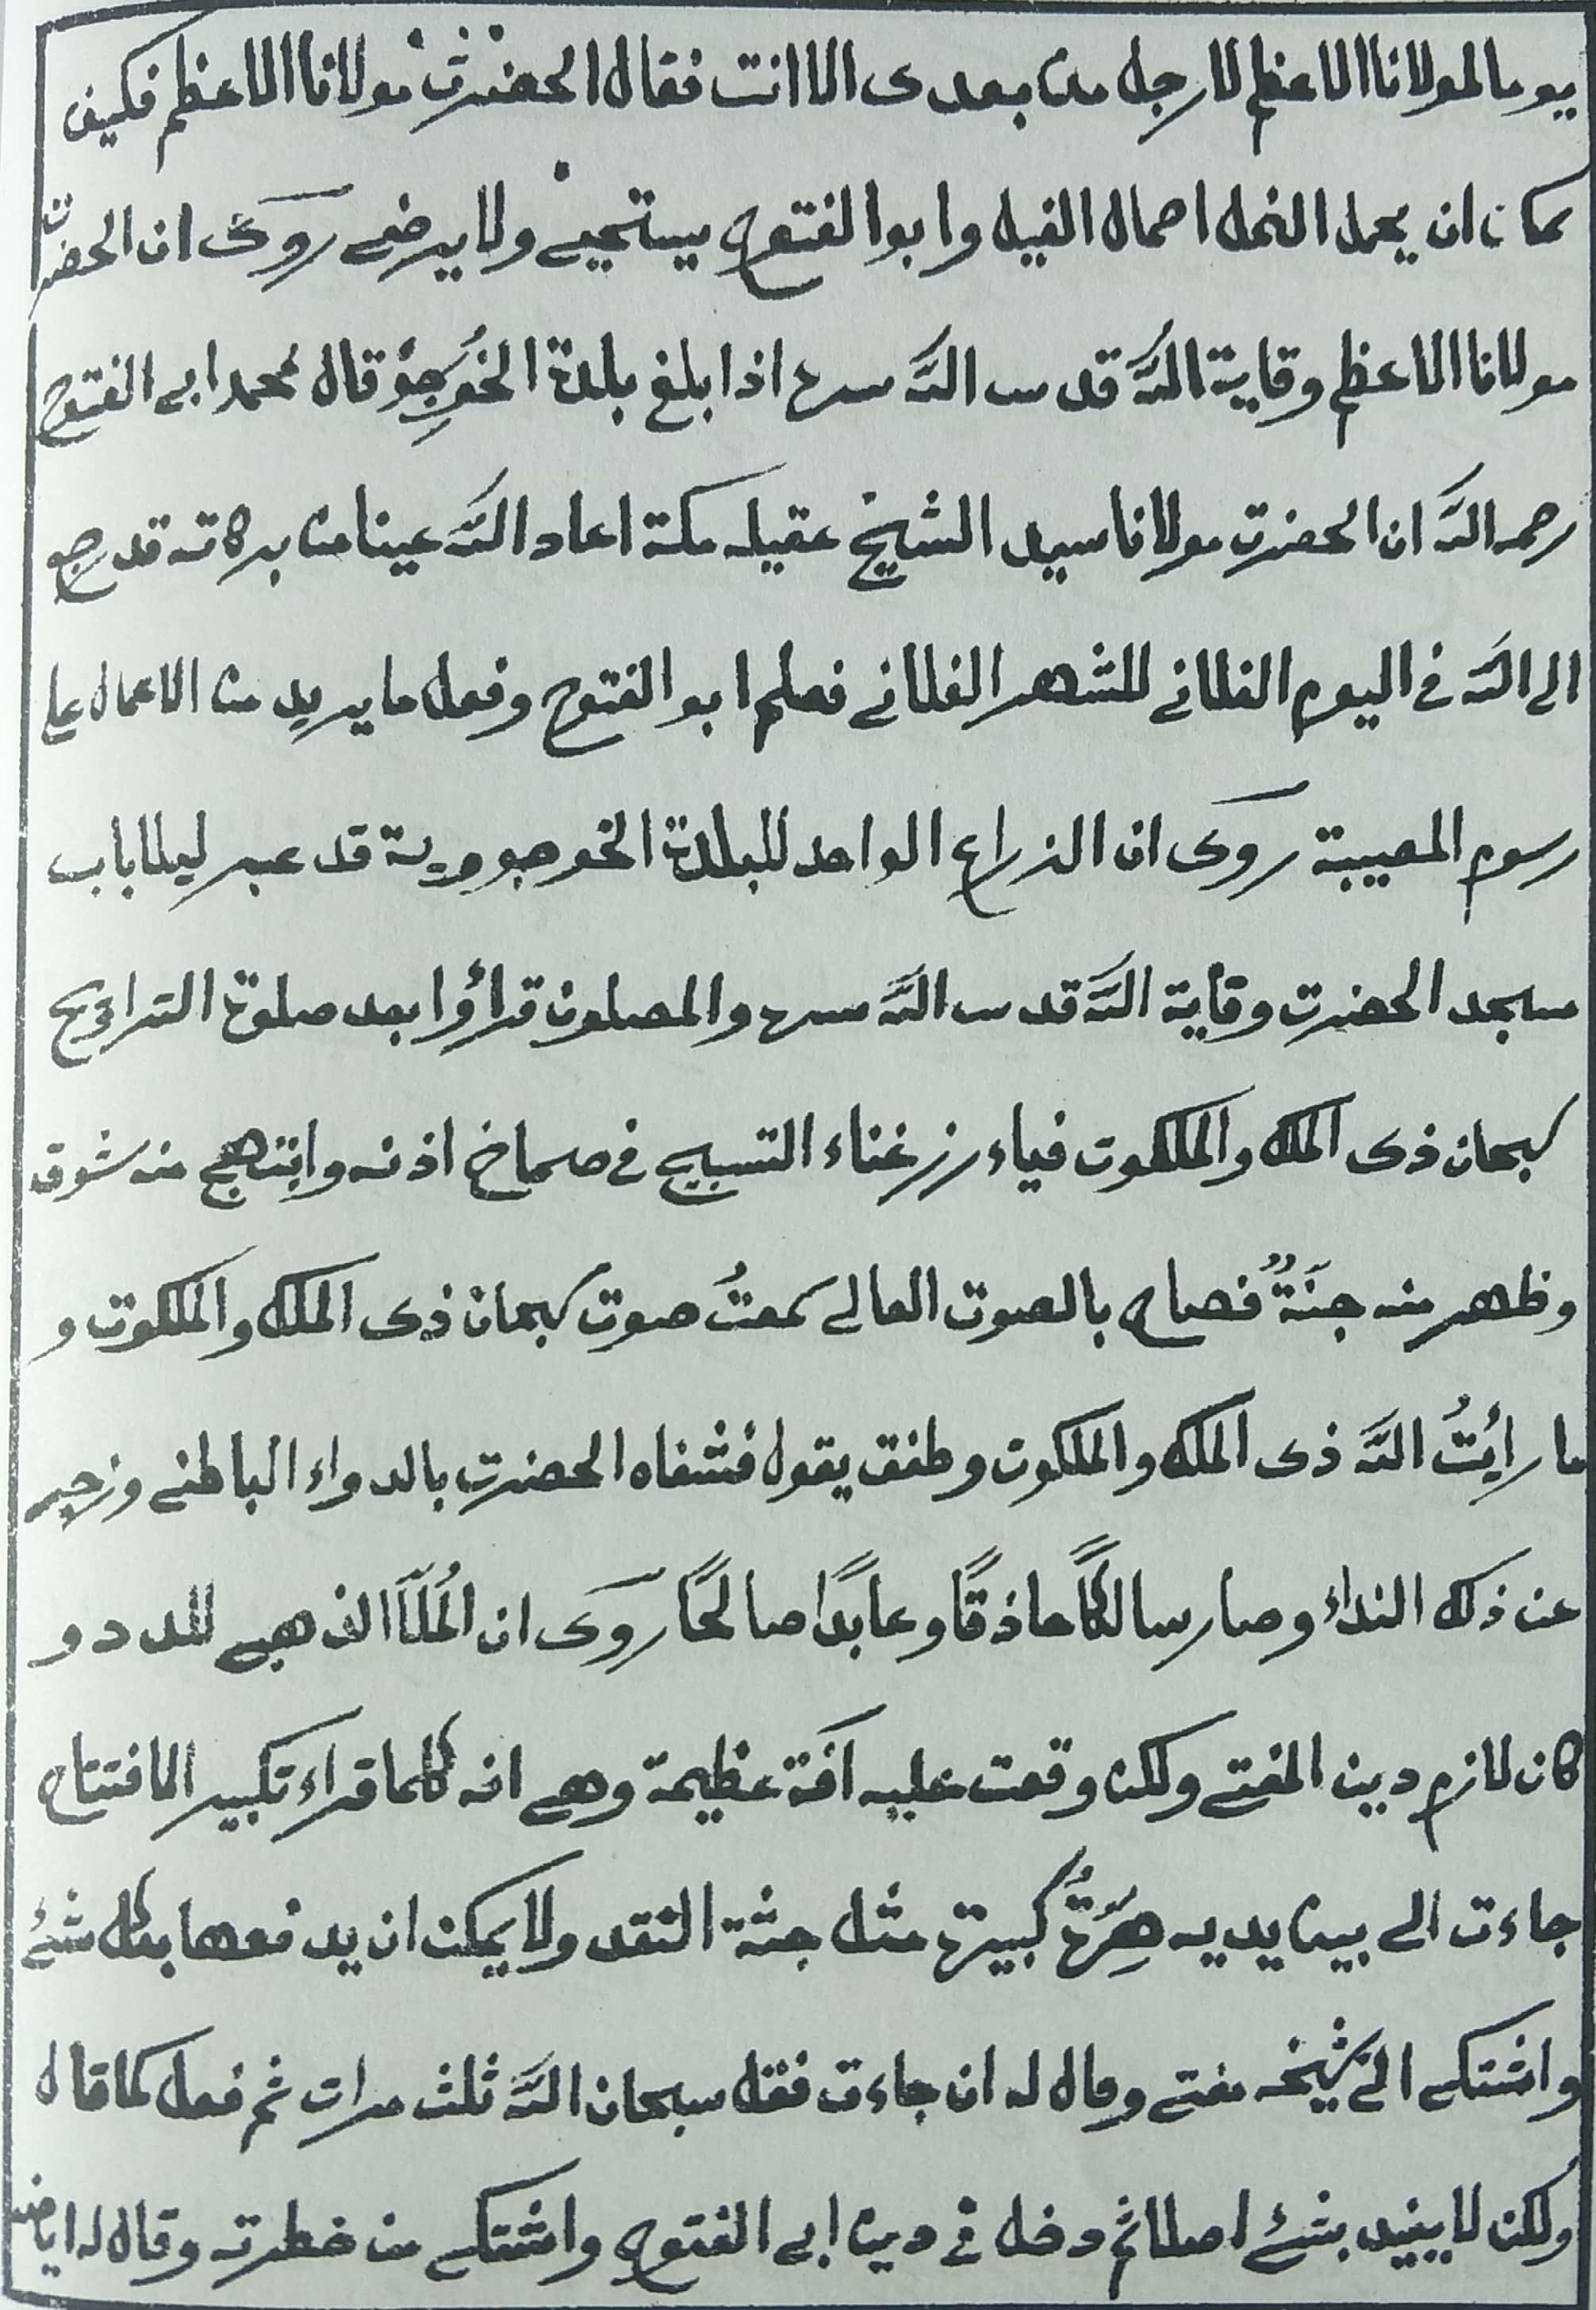 يوما لمولانا الاعظم لا رجل من بعدى الا انت فقال الحضرت مولانا الاعظم فكيف
كان ان يحمل النمل احمال الفيل وابو الفتوح يستحيے ولا يرضے روى ان الحضرت
مولانا الاعظم وقاية اللّه قدس اللّه سره اذا بلغ بلدة الخُوجِوْ قال لمحمد ابے الفتوح
رحمه اللّه ان الحضرت مولانا سيد الشيخ عقيله مكة اعاد اللّه عينا من بركاته قد رجع
الى اللّه فى اليوم الفلانے للشهر الفلانے فعلم ابو الفتوح وفعل ما يريد من الاعمال على
رسوم المصيبة روى ان الزراع الواحد للبلدة الخوجووية قد عبر ليلا باب
مسجد الحضرت وقاية اللّه قدس اللّه سره والمصلون قرأوا بعد صلوة التراويح
سبحان ذى الملك والملكوت فياء رز غناء التسبيح فى صماخ اذنه وابتهج منه شوق
وظهر منه جَنَةٌ فصاح بالصوت العالے سمعتُ صوت سبحان ذى الملك والملكوت و
ما رايتُ اللّه ذى الملك والملكوت وطفق يقول فشفاه الحضرت بالدواء الباطنے وزجره
عن ذلك النداء وصار سالكًا حاذقًا وعابدًا صالحًا روى ان المُلَّا الذهبے للددو
كان لازم دين المفتے ولكن وقعت عليه آفة عظيمة وهے انه كلما قراء تكبير الافتتاح
جاءت الے بين يديه هِرّةٌ كبيرة مثل جثة النقد ولا يمكن ان يدفعها بكل شئے
واشتكے الے شيخه مفتے وقال له ان جاءت فقل سبحان اللّه ثلث مرات ثم فعل كما قال
ولكن لا يفيد بشئے اصلا ثم دخل فى دين ابے الفتوح واشتكے من خطرته وقال له ايا